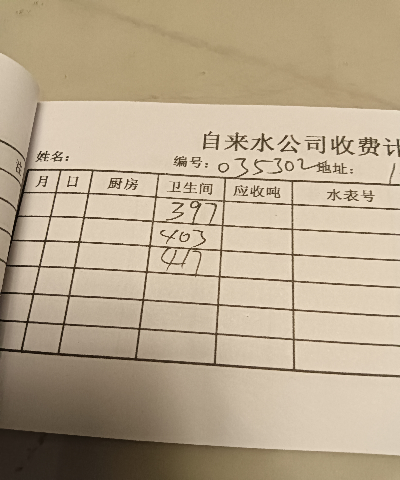 自来水公司收费计
姓名： 编号：035302 地址：1
月 日 厨房 卫生间 应收吨 水表号
397
403
417